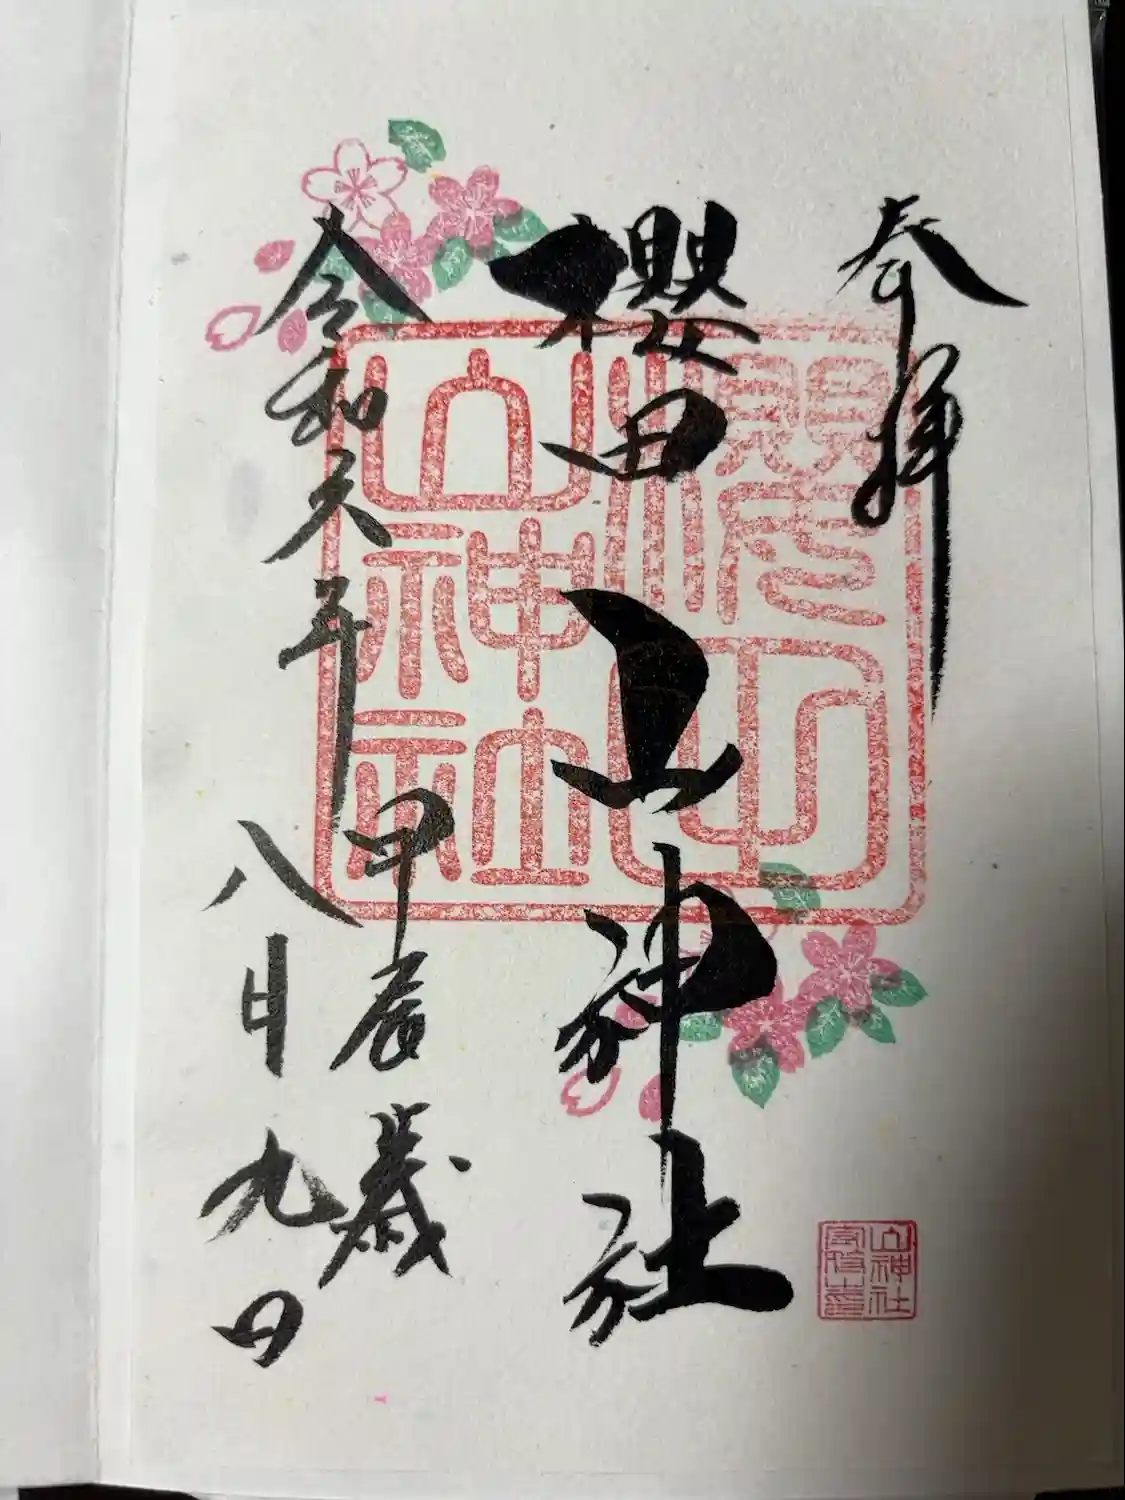 奉拝
櫻田山神社
令和六年
甲辰歳
八月九日
櫻田
山神社
山神社